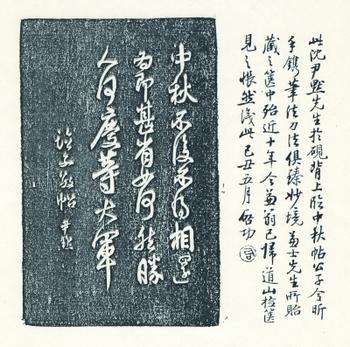 此沈尹默先生於硯背上臨中秋帖公子令昕
手鐫筆法刀法俱臻妙境士先生所貽
藏之篋中殆近十年今翁已歸道山檢篋
見之悵然識此己丑五月啟功
中秋不復不得相還
為即甚省如何然勝
人何慶等大軍
臨子敬帖 尹默